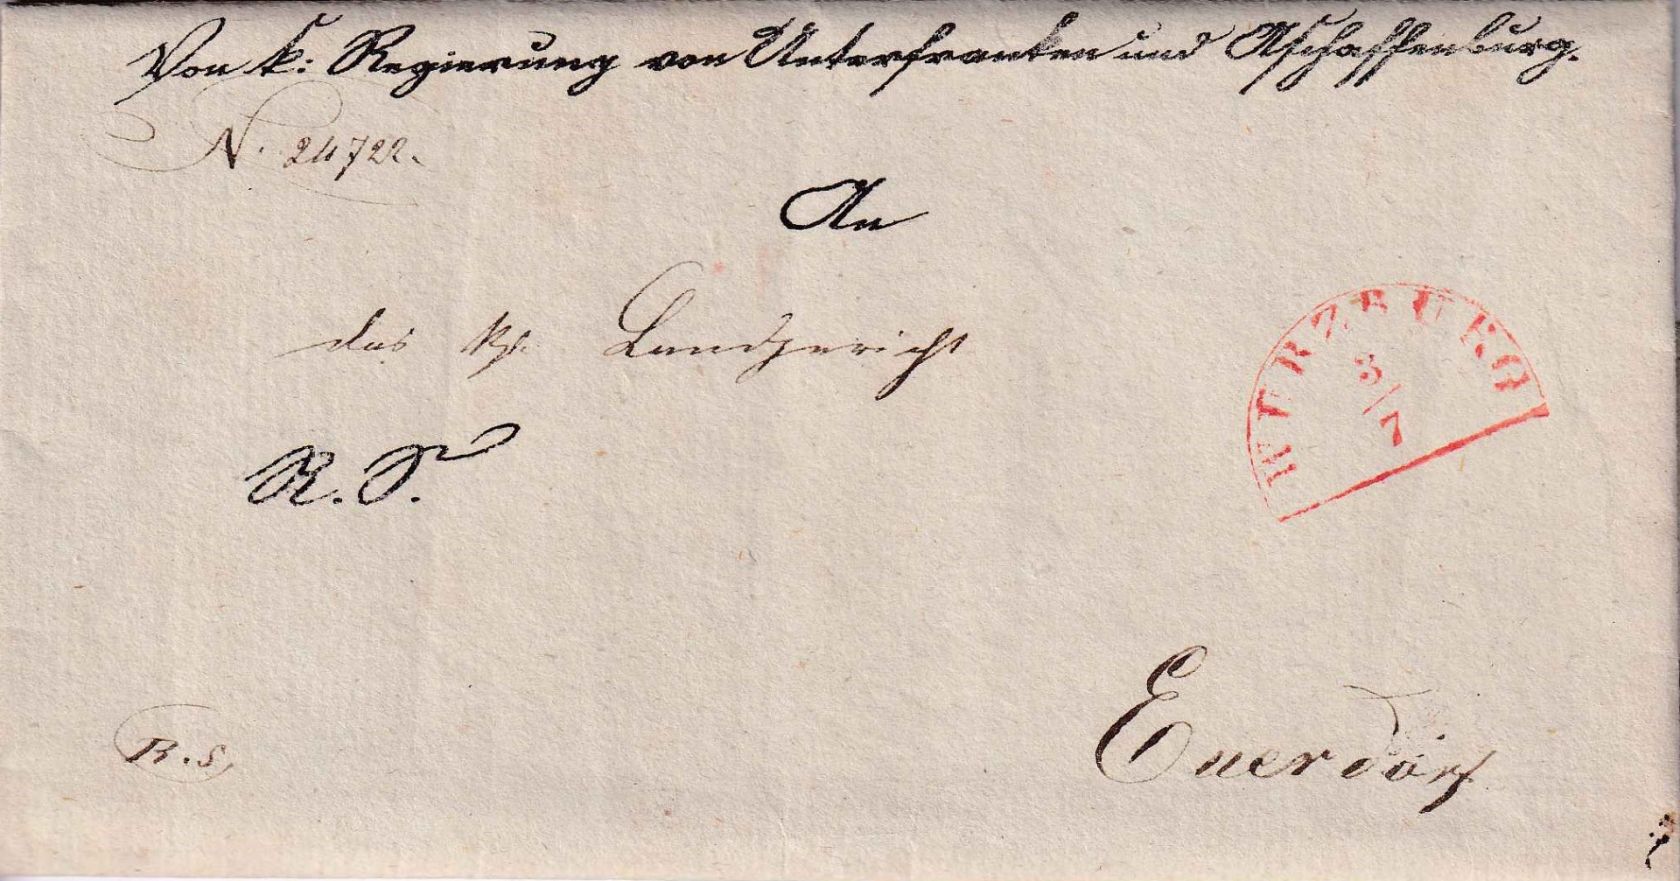 Von k: Regierung von Unterfranken und Aschaffenburg.
N. 24722.
An
das Kgl. Landgericht
WÜRZBURG
3/7
R. S.
Euerdorf
R. S.